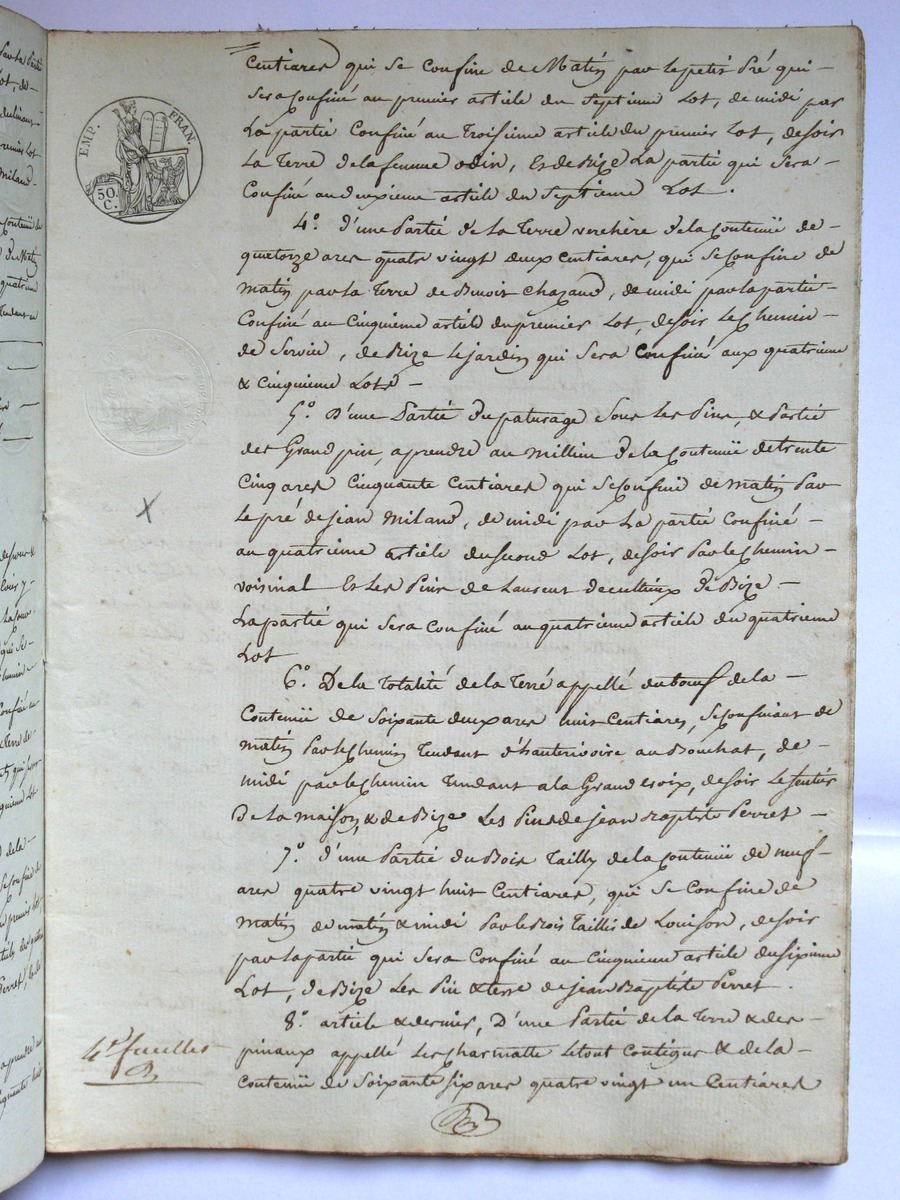 EMP. FRAN.
50 C.
Centiares qui se confine de Matin par le petit Pré qui -
sera confiné au premier article du septieme Lot, de midi par
La partie Confiné au Troisieme article du premier Lot, de soir
La Terre de la femme odin, Et de Bize La partie qui sera -
Confiné au deuxieme article du septieme Lot.
4.° d'une Partie de la Terre verchère de la Contenüe de -
quatorze ares quatre vingt deux Centiares, qui se confine de
Matin par la Terre de Benoit Chazaud, de midi par la partie -
Confiné au Cinquieme article du premier Lot, de soir le Chemin -
de Servie, de Bize le jardin qui sera confiné aux quatrieme
& Cinquieme Lots -
5.° D'une Partie du paturage sous Les Pins, & Partie
des Grand pin, a prendre au millieu de la Contenüe de trente
Cinq ares Cinquante Centiares qui se confine de Matin Par
Le pré de jean Miland, de midi par La partie Confiné -
au quatrieme article du second Lot, de soir Par le Chemin -
voisinal Et Les Pins de Laurent de Bize -
La partie qui sera Confiné au quatrieme article du quatrieme
Lot
6.° De la Totalité de la Terre appellé du bœuf de la -
Contenüe de soixante deux ares huit Centiares, se confinant de
matin Par le Chemin Tendant d'hauterivoire au Bouchat, de -
midi par le Chemin Tendant a la Grand croix, de soir Le sentier
De la maison, & de Bize Les Pins de jean Baptiste Perret -
7.° d'une Partie du Bois Tailly de la Contenüe de neuf -
ares quatre vingt huit Centiares, qui se Confine de
Matin de matin & midi Par le Bois Taillis de Louison, de soir
par la partie qui sera Confiné au Cinquieme article du sixieme
Lot, de Bize Les Pin & terre de jean Baptiste Perret.
8.° article & dernier, D'une Partie de la Terre & des -
pinaux appellé Les Charmatte Le tout Contigus & de la -
Contenüe de soixante six ares quatre vingt un Centiares
4.e feuillet